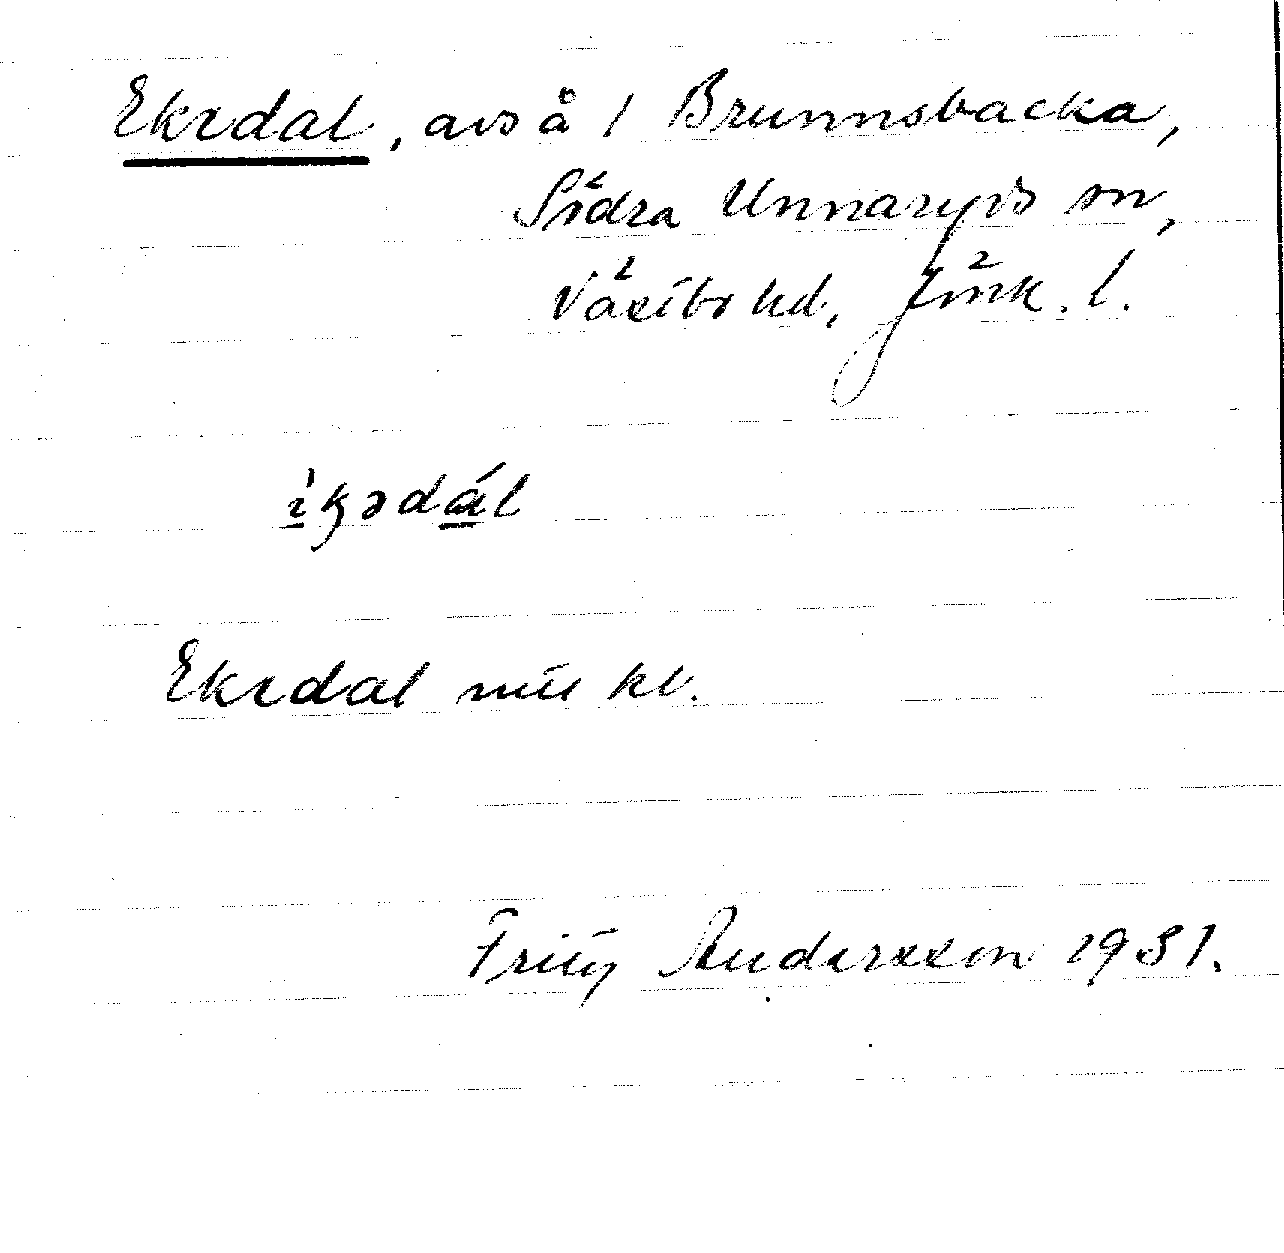 Ekedal, avs å 1 Brunnsbacka,
Södra Unnaryds sn,
Västbo hd, Jönk. l.
Ekedal mtl kb.
Fritz Andersson 1931.